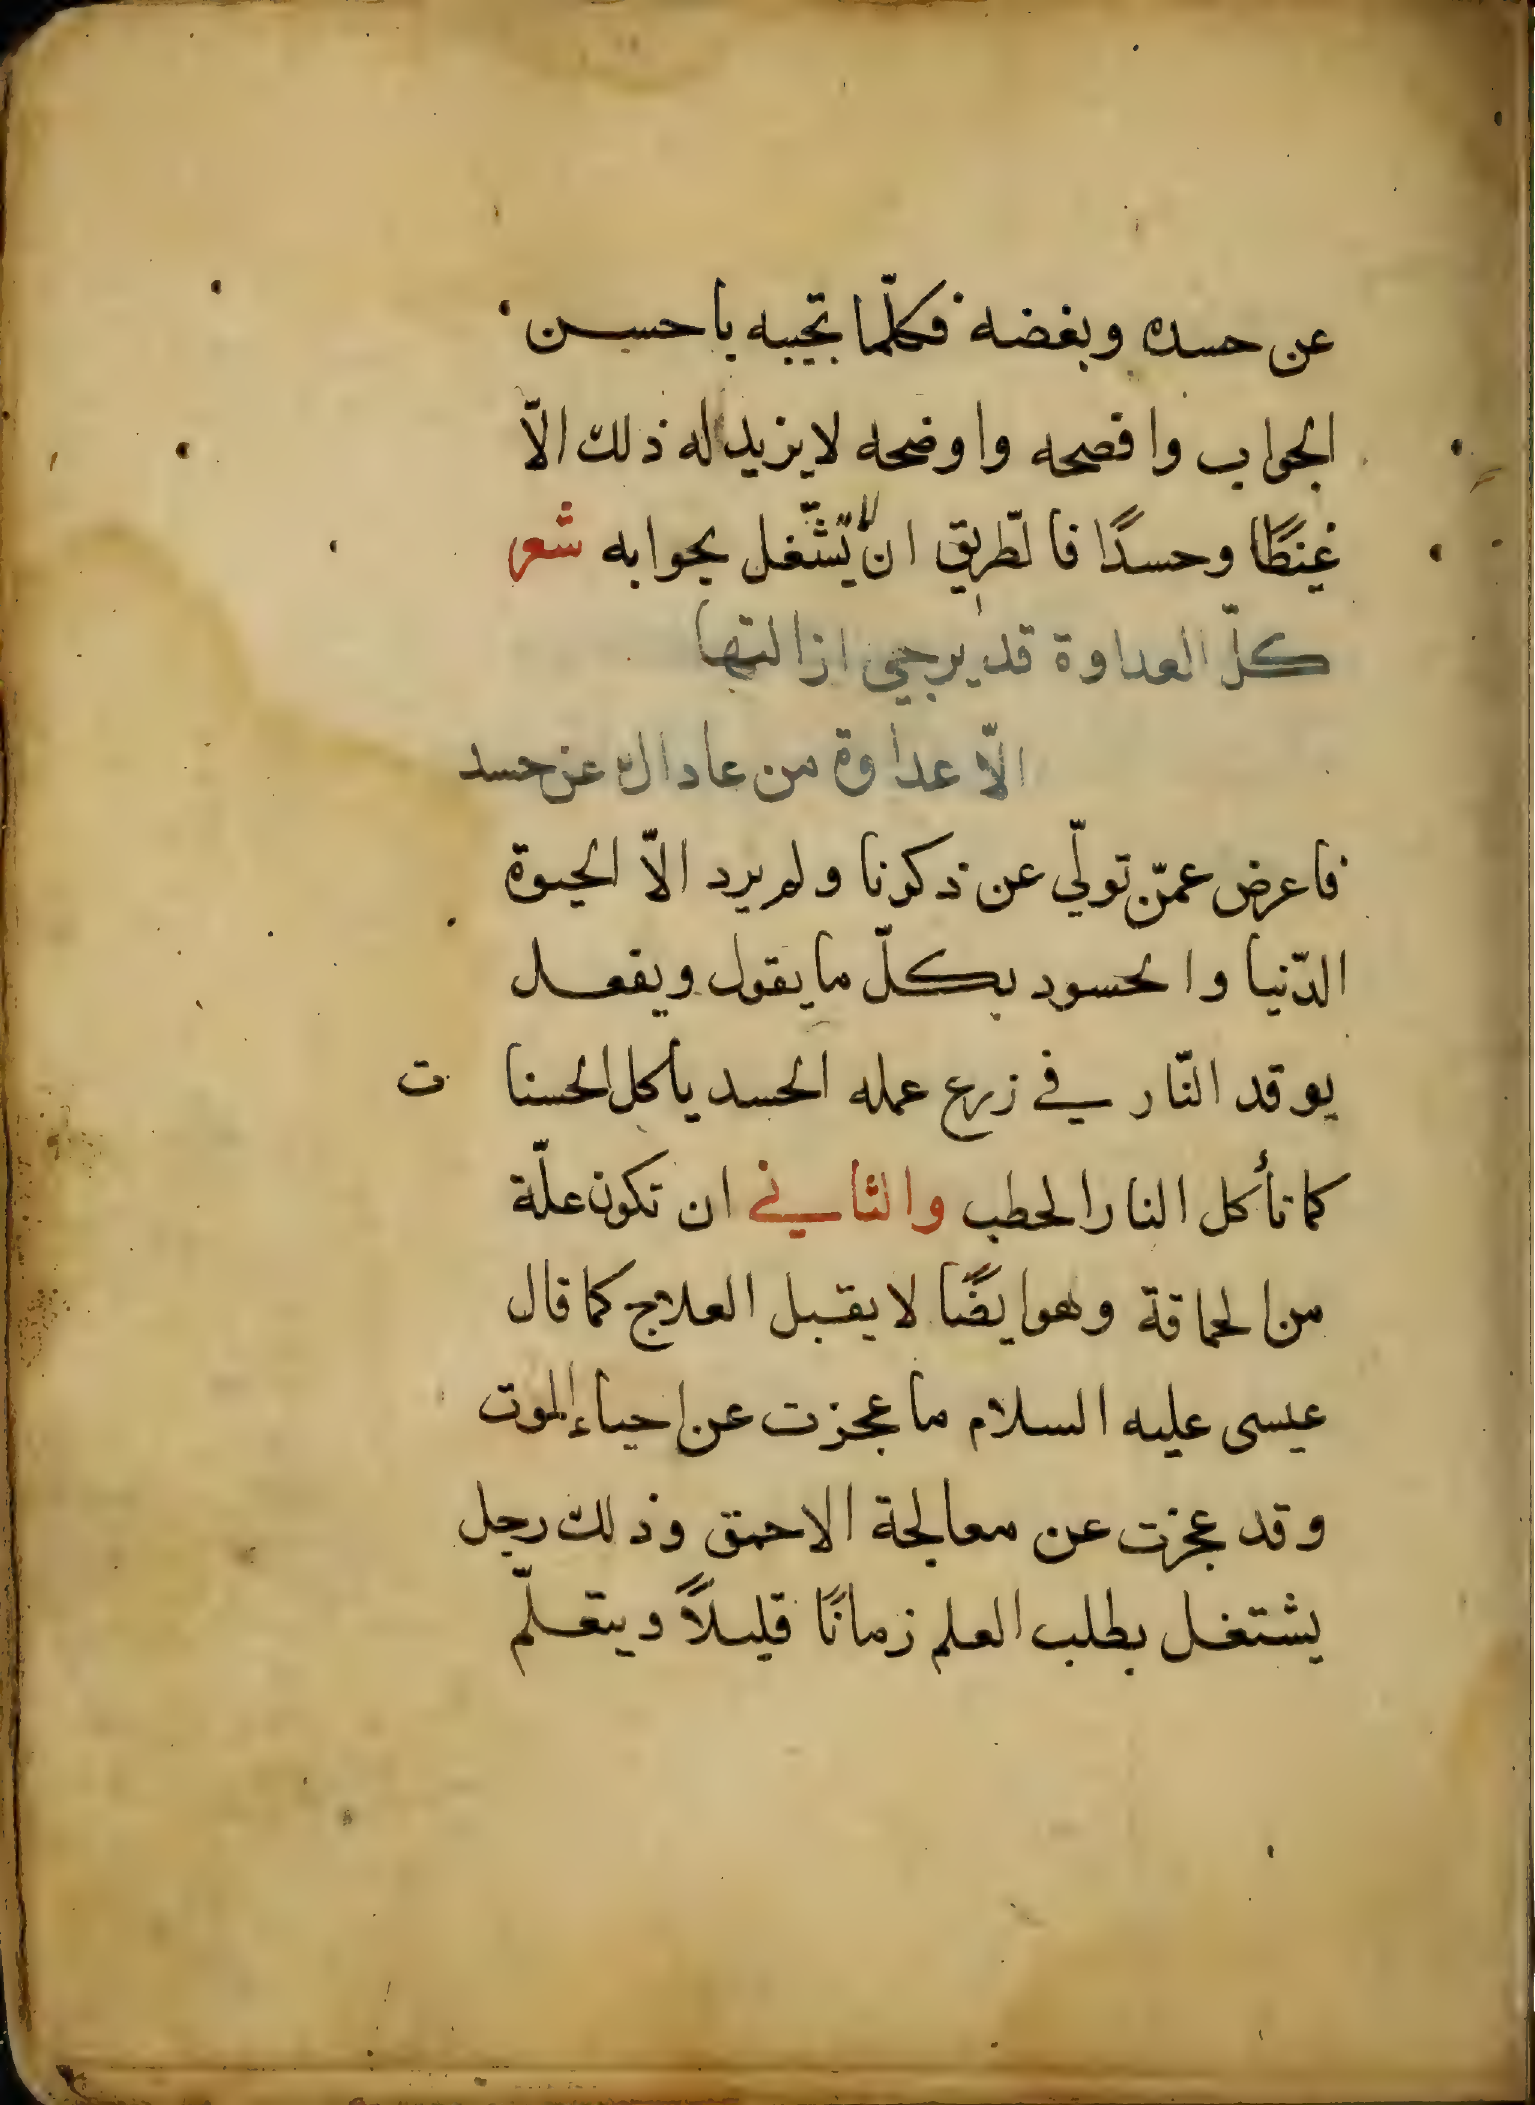 عن حسده وبغضه فكلّما تجيبه باحسن
الجواب وافصحه واوضحه لا يزيد له ذلك الّا
غيظًا وحسدًا فالطّريق ان لا تشّغل بجوابه شعر
كلّ العداوة قد يرجي ازالتها
الّا عداوة من عاداك عن حسد
فاعرض عمّن تولّي عن ذكرنا ولم يرد الّا الحيوة
الدّنيا والحسود بكلّ ما يقول ويفعل
يوقد النّار في زرع عمله الحسد يأكل الحسنات
كما تأكل النار الحطب والثاني ان تكون علّة
من الحماقة وهو ايضًا لا يقبل العلاج كما قال
عيسى عليه السلام ما عجزت عن إحياء الموت
وقد عجزت عن معالجة الاحمق وذلك رجل
يشتغل بطلب العلم زمانًا قليلاً ويتعلّم